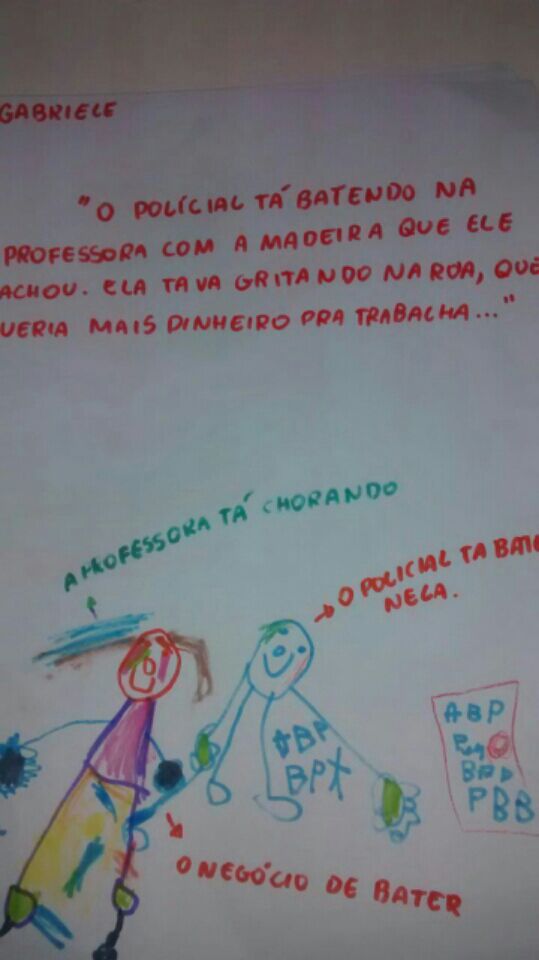 GABRIELE
"O POLÍCIAL TÁ BATENDO NA
PROFESSORA COM A MADEIRA QUE ELE
ACHOU. ELA TAVA GRITANDO NA RUA, QUE
UERIA MAIS DINHEIRO PRA TRABALHA..."
A PROFESSORA TÁ CHORANDO
O POLICIAL TA BATE
NELA.
ABP
BPX
ABP
BPD
PBB
O NEGÓCIO DE BATER